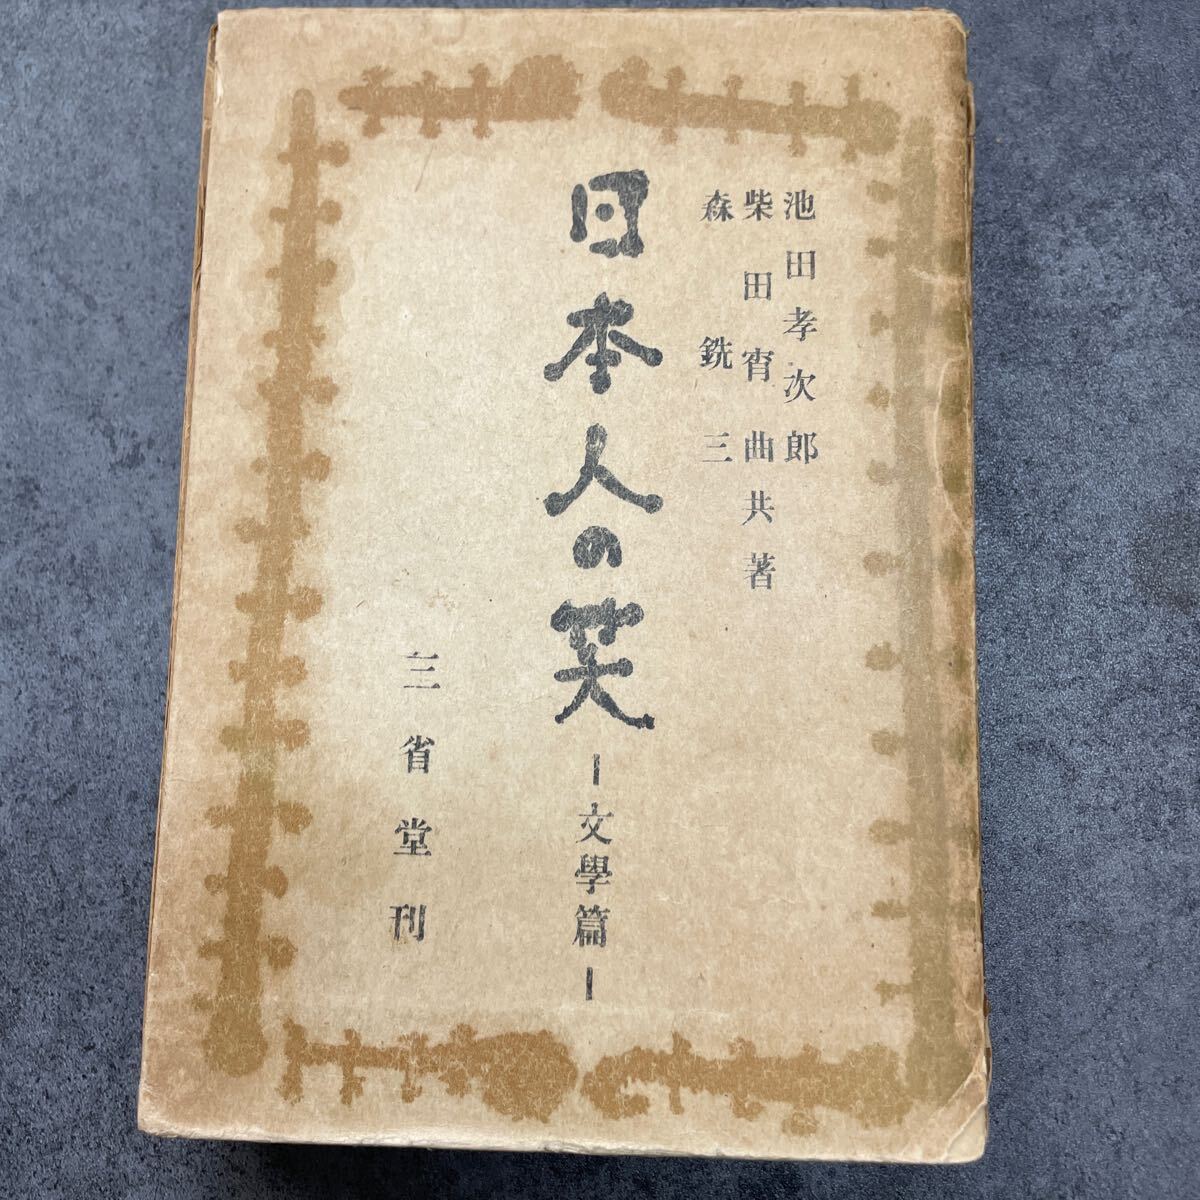 池田孝次郎
柴田宵曲共著
森銑三
日本人の笑
―文學篇―
三省堂刊